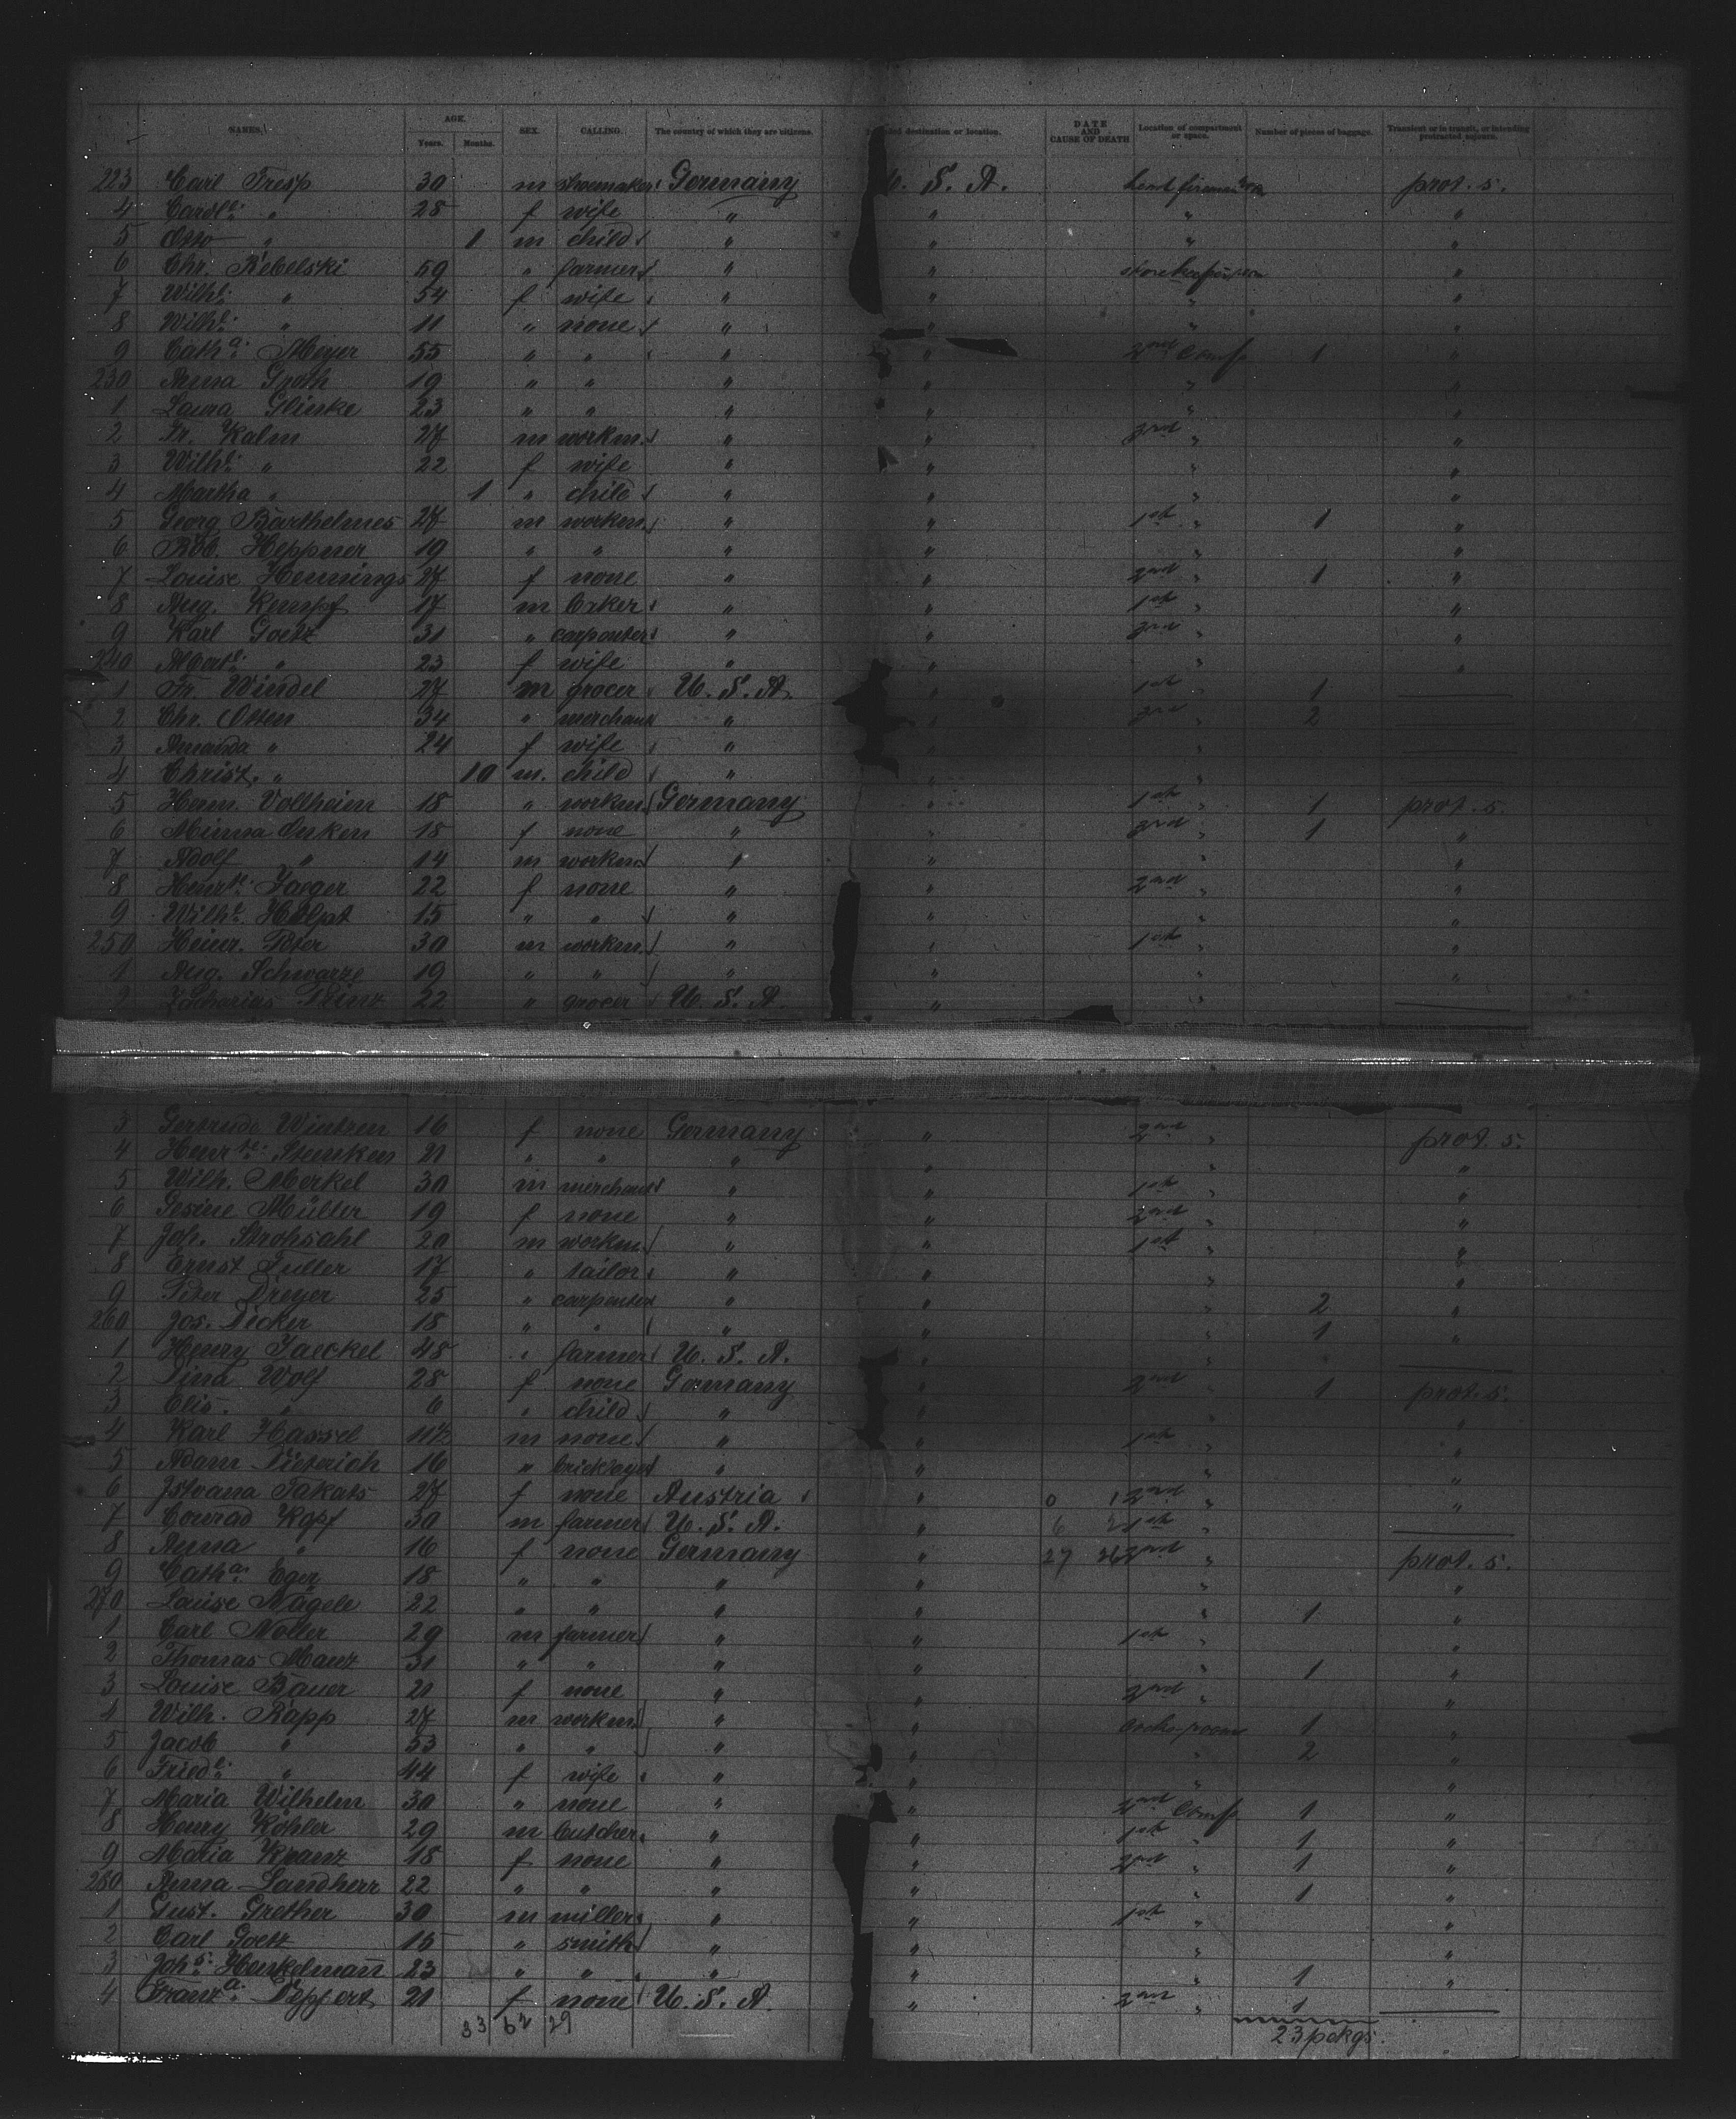 NAMES. AGE. SEX. CALLING. The country of which they are citizens. destination or location. DATE AND CAUSE OF DEATH Location of compartment or space. Number of pieces of baggage. Transient or in transit, or intending protracted sojourn.
Years. Months.
223 Carl Tresp 30 m shoemaker Germany U. S. A. prot. s.
4 Carole " 28 f wife " " " "
5 Otto " 1 m child " " " "
6 Chr. Rebelski 59 " farmer " " "
7 Wilhe " 54 f wife " " " "
8 Wilhe " 11 " none " " " "
9 Catha Meyer 55 " " " " 2nd Comp 1 "
230 Anna Groth 19 " " " " " "
1 Laura Glinke 23 " " " " " "
2 Fr. Kalm 27 m workm. " " 3rd " "
3 Wilhe " 22 f wife " " " "
4 Martha " 1 " child " " " "
5 Georg Barthelmes 27 m workm. " " 1st " 1 "
6 Rob. Heppner 19 " " " " " "
7 Louise Hennings 27 f none " " 2nd " 1 "
8 Aug. Kempf 17 m " " 1st " "
9 Karl Goetz 31 " carpenter " " 3rd " "
240 Alberte " 23 f wife " " " "
1 Fr. Windel 27 m grocer U. S. A. " 1st " 1
2 Chr. Otten 34 " merchant " " 3rd " 2
3 Amanda " 24 f wife " " "
4 Christ. " 10 m. child " " "
5 Herm. Vollheim 18 " workm. Germany " 1st " 1 prot. s.
6 Minna 18 f none " " 3rd " 1 "
7 Adolf " 14 m workm. " " " "
8 Henrte Jaeger 22 f none " " 2nd " "
9 Wilhe 15 " " " " " "
250 Heinr. Peter 30 m workm. " " 1st " "
1 Aug. Schwarze 19 " " " " " "
2 Zacharias Prinz 22 " grocer U. S. A. " "
3 Gertrude Wintzen 16 f none Germany " 2nd " prot. s.
4 Henrte 21 " " " " " "
5 Wilh. Merkel 30 m merchant " " 1st " "
6 Gesine Müller 19 f none " " 2nd " "
7 Joh. Strohsahl 20 m workm. " " 1st " "
8 Ernst 17 " tailor " " " "
9 Peter Dreyer 25 " carpenter " " " 2 "
260 Jos. Decker 18 " " " " " 1 "
1 Henry Jaeckel 48 " farmer U. S. A. " "
2 Wolf 28 f none Germany " 2nd " 1 prot. s.
3 Elis. " 6 " child " " " "
4 Karl Hassel 11½ m none " " 1st " "
5 Adam Dieterich 16 " bricklayer " " " "
6 Takats 27 f none Austria " 0 1 2nd " "
7 Conrad Kopf 30 m farmer U. S. A. " 6 2 1st "
8 Anna " 16 f none Germany " 27 2nd " prot. s.
9 Catha Eger 18 " " " " " "
270 Louise Nägele 22 " " " " " 1 "
1 Carl Nolter 29 m farmer " " 1st " "
2 Thomas Manz 31 " " " " " 1 "
3 Louise Bauer 21 f none " " 2nd " "
4 Wilh. Rapp 27 m workm. " " 1 "
5 Jacob " 53 " " " " " 2 "
6 Friede " 44 f wife " " " "
7 Maria Wilhelm 30 " none " " 2nd Comp 1 "
8 Henry Köhler 29 m butcher " " 1st " 1 "
9 Maria Kranz 18 f none " " 2nd " 1 "
280 Anna Landherr 22 " " " " " 1 "
1 Gust. Grether 30 m miller " " 1st " "
2 Carl Goetz 15 " smith " " " "
3 Johs Henkelmann 23 " " " " " 1 "
4 Franza 21 f none U. S. A. " 2nd " 1
33 62 29 23 pckgs.